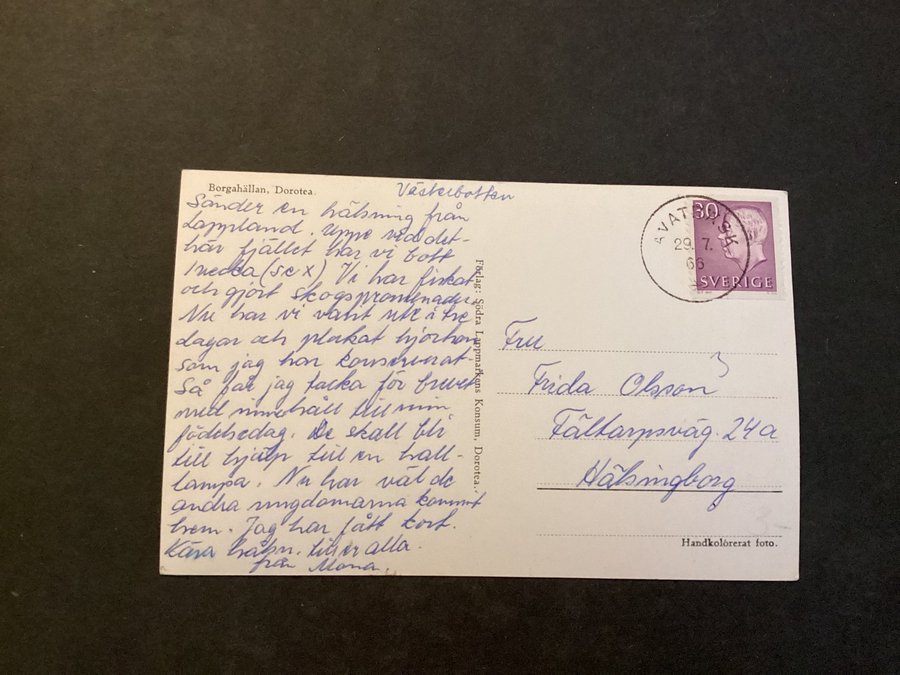 Borgahällan, Dorotea.
Västerbotten
Sänder en hälsning från
Lappland. Uppe vid det-
här fjället har vi bott
1 vecka (se x) Vi har fiskat
och gjort skogspromenader.
Nu har vi varit ute i tre
dagar och plockat hjortron
som jag har konserverat.
Så får jag tacka för brevet
med innehåll till min
födelsedag. De skall bli
till hjälp till en hall-
lampa. Nu har väl de
andra ungdomarna kommit
hem. Jag har fått kort.
Kära hälsn. till er alla.
från Mona.
Förlag: Södra Lappmarkens Konsum, Dorotea.
AVATRÄSK
29. 7.
66
30
SVERIGE
Fru
Frida Olsson
Fältarpsväg. 24a
Hälsingborg
Handkolörerat foto.